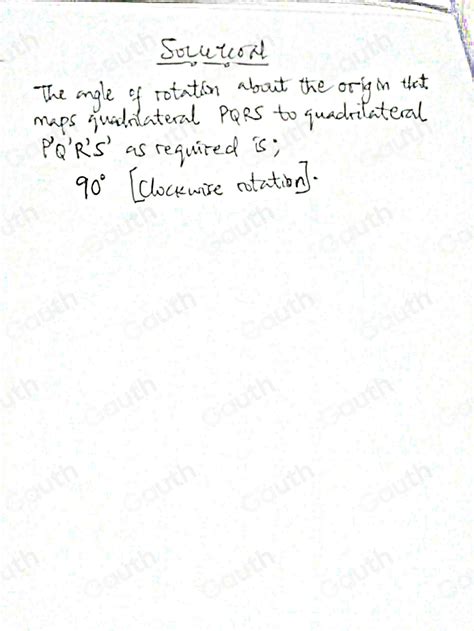 Solution
The angle of rotation about the origin that
maps quadrilateral PQRS to quadrilateral
P'Q'R'S' as required is;
90° [Clockwise rotation].
Gauth